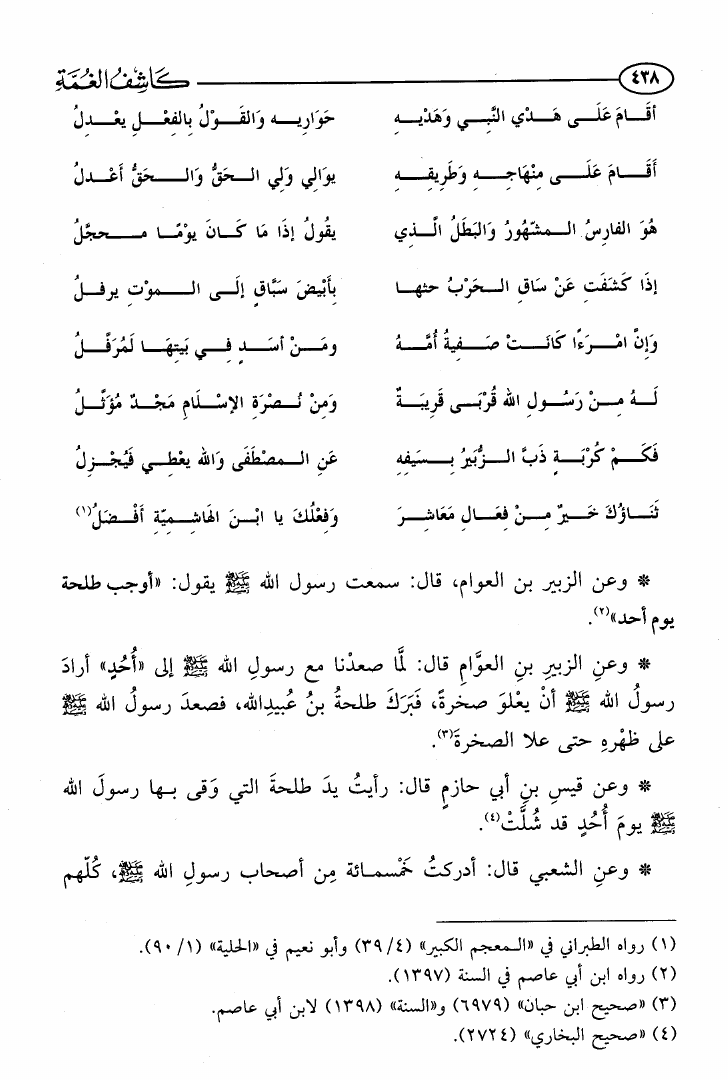 ٤٣٨ كَاشِفُ الغُمَّةِ
أقَامَ عَلَى هَدْيِ النَّبِي وَهَدْيِهِ حَوَارِيهِ وَالقَوْلُ بِالفِعْلِ يعْدِلُ
أَقَامَ عَلَى مِنْهَاجِهِ وَطَرِيقِهِ يوَالِي وَلِي الحَقُّ وَالحَقُّ أَعْدلُ
هُوَ الفارِسُ المشْهُورُ وَالبَطَلُ الَّذِي يقُولُ إذَا مَا كَانَ يوْمًا محجَّلُ
إذَا كَشَفَتِ عَنْ سَاقِ الحَرْبُ حثها بِأَبْيضَ سَبَّاقٍ إلَى الموْتِ يرفلُ
وَإنَّ امْرَءًا كَانَتْ صَفيةُ أُمَّهُ ومَنْ أسَدٍ فِي بَيتِهَا لَمُرَفَّلُ
لَهُ مِنْ رَسُولِ الله قُرْبَى قَرِيبَةٌ وَمِنْ نُصْرَةِ الإسْلَامِ مَجْدٌ مُؤَثَّلُ
فَكَمْ كُرْبَةٍ ذَبَّ الزُّبَيرُ بِسَيفِهِ عَنِ المصْطَفَى وَالله يعْطِي فَيُجْزِلُ
ثَنَاؤُكَ خَيرٌ مِنْ فِعَالِ مَعَاشِرَ وَفِعْلُكَ يا ابْنَ الهَاشِمِيّةِ أَفْضَلُ(١)
* وعن الزبير بن العوام، قال: سمعت رسول الله ﷺ يقول: «أوجب طلحة
يوم أحد»(٢).
* وعنِ الزبيرِ بنِ العوَّامِ قال: لمَّا صعدْنا مع رسولِ الله ﷺ إلى «أُحُدٍ» أرادَ
رسولُ الله ﷺ أنْ يعْلوَ صخرةً، فَبَرَكَ طلحةُ بنُ عُبيدِالله، فصعدَ رسولُ الله ﷺ
على ظهْرِهِ حتى علا الصخرةَ(٣).
* وعن قيسِ بنِ أبي حازمٍ قال: رأيتُ يدَ طلحةَ التي وَقى بها رسولَ الله
ﷺ يومَ أُحُدٍ قد شُلَّتْ(٤).
* وعنِ الشعبي قال: أدركتُ خَمْسمائة مِن أصحاب رسولِ الله ﷺ، كُلّهم
(١) رواه الطبراني في «المعجم الكبير» (٤/ ٣٩) وأبو نعيم في «الحلية» (١/ ٩٠).
(٢) رواه ابن أبي عاصم في السنة (١٣٩٧).
(٣) «صحيح ابن حبان» (٦٩٧٩) و«السنة» (١٣٩٨) لابن أبي عاصم.
(٤) «صحيح البخاري» (٢٧٢٤).